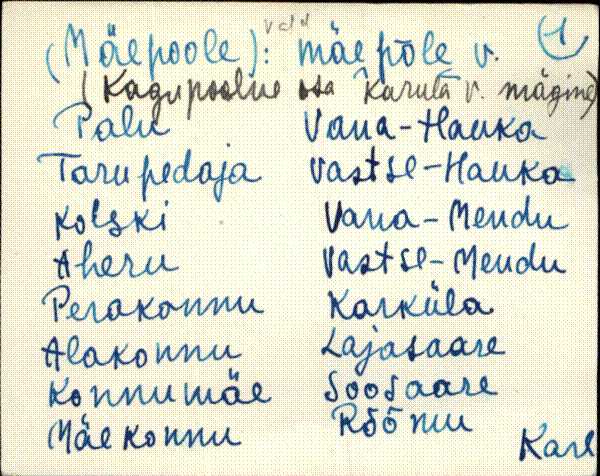 (Mäepoole): mäepõle v. 1
(Kagupoolne osa Karula v. mägine)
Palu Vana-Hauka
Tarupedaja Vastse-Hauka
Kolski Vana-Mendu
Aheru Vastse-Mendu
Perakonnu Karküla
Alakonnu Lajasaare
Konnumäe Soosaare
Mäekonnu Rõõmu
Karl